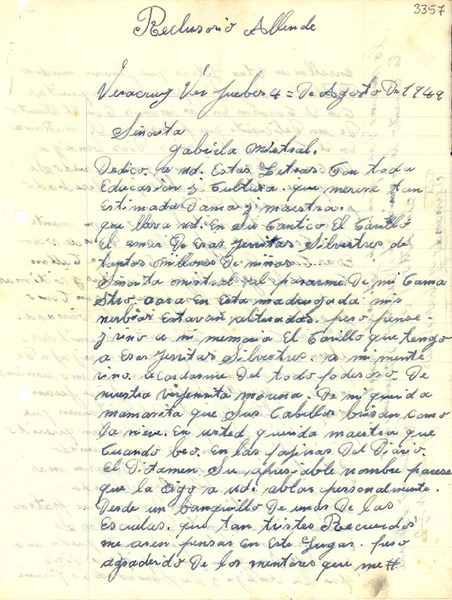 3357
Reclusorio Allende
Veracruz Ver Juebes 4 = De Agosto De 1949
Señorita
Gabriela Mistral.
Dedico. a ud. Estas Letras Con toda
Educasion y Cultura. que merese tan
Estimada Dama y maestra.
que lleva ud. En su Cantico El Cariño
El amor De Esas Silvestres de
tantos millones De niñas.
Señorita mistral al pararme De mi Cama
Stro, aora en Esta madrugada mis
nerbios Estavan alterados, pero pense
y vino a mi memoria El Cariño que tengo
a Esas Silvestres. a mi mente
vino. acordarme Del todo poderoso. De
nuestra virjensita morena. De mi querida
mamasita que Sus Cabellos Como
la nieve. En usted querida maestra que
Cuando beo. En las pajinas Del Diario.
El Dictamen Su apresiable nombre parese
que la Sigo a ud. ablar personalmente.
Desde un banquillo De unas De las
Escuelas. que tan tristes Recuerdos
me asen pensar En Este Lugar. pero
agradesido De los mentores que me #